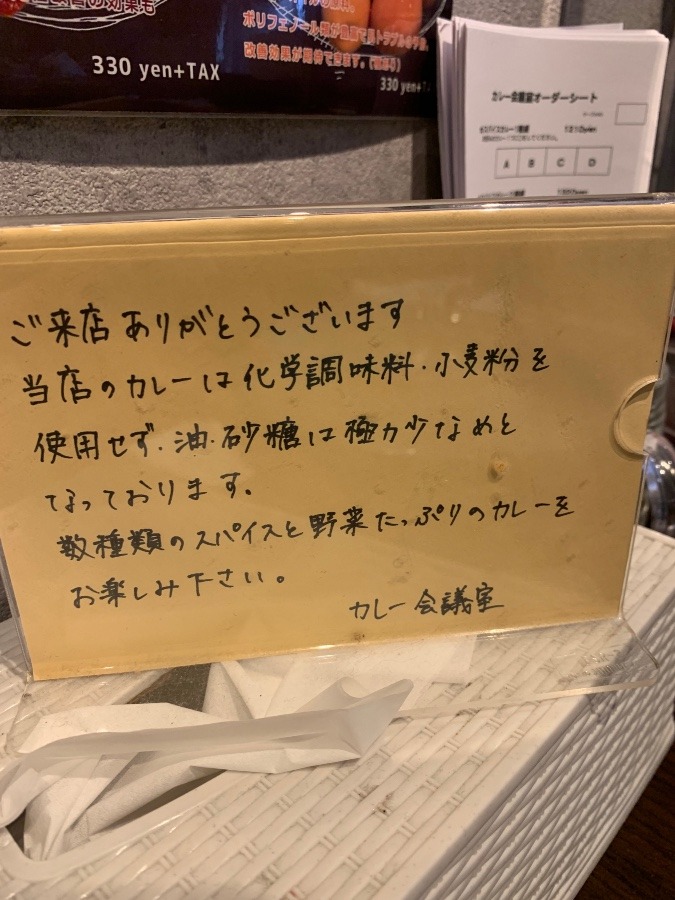 改善の効果も
330 yen+TAX
改善効果が期待できます。
330 yen+T
カレー会議室オーダーシート
A B C D
ご来店ありがとうございます
当店のカレーは化学調味料・小麦粉を
使用せず・油・砂糖は極力少なめと
なっております。
数種類のスパイスと野菜たっぷりのカレーを
お楽しみ下さい。
カレー会議室